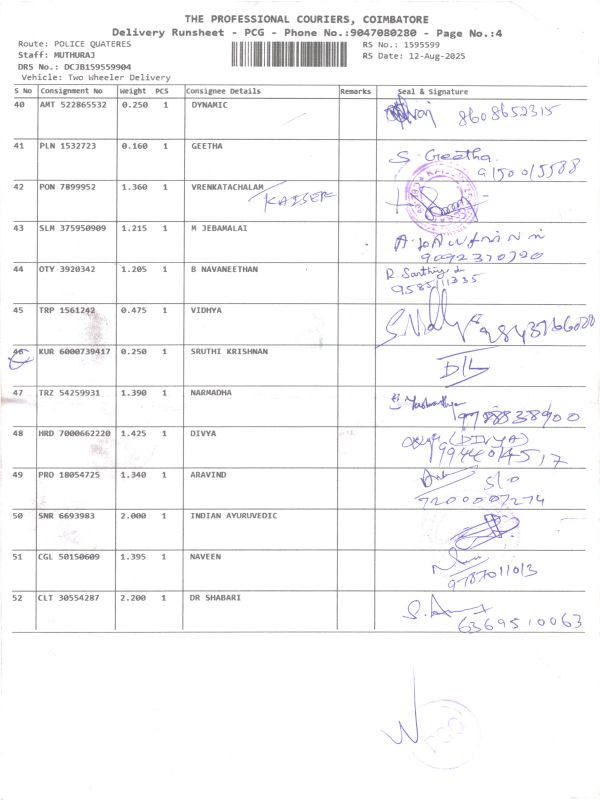 THE PROFESSIONAL COURIERS, COIMBATORE
Delivery Runsheet - PCG - Phone No.:9047080280 - Page No.:4
Route: POLICE QUATERES RS No.: 1595599
Staff: MUTHURAJ RS Date: 12-Aug-2025
DRS No.: DCJB159559904
Vehicle: Two Wheeler Delivery
S No Consignment No Weight PCS Consignee Details Remarks Seal & Signature
40 AMT 522865532 0.250 1 DYNAMIC 8608652315
41 PLN 1532723 0.160 1 GEETHA S. Geetha
9150015588
42 PON 7899952 1.360 1 VRENKATACHALAM
KAISER
43 SLM 375950909 1.215 1 M JEBAMALAI
9092370720
44 OTY 3920342 1.205 1 B NAVANEETHAN
9585111335
45 TRP 1561242 0.475 1 VIDHYA
46 KUR 6000739417 0.250 1 SRUTHI KRISHNAN D/L
47 TRZ 54259931 1.390 1 NARMADHA
9788838900
48 HRD 7000662220 1.425 1 DIVYA (DIVYA)
9944014517
49 PRO 18054725 1.340 1 ARAVIND S/O
9200007274
50 SNR 6693983 2.000 1 INDIAN AYURUVEDIC
51 CGL 50150609 1.395 1 NAVEEN
9787011013
52 CLT 30554287 2.200 1 DR SHABARI
6369510063